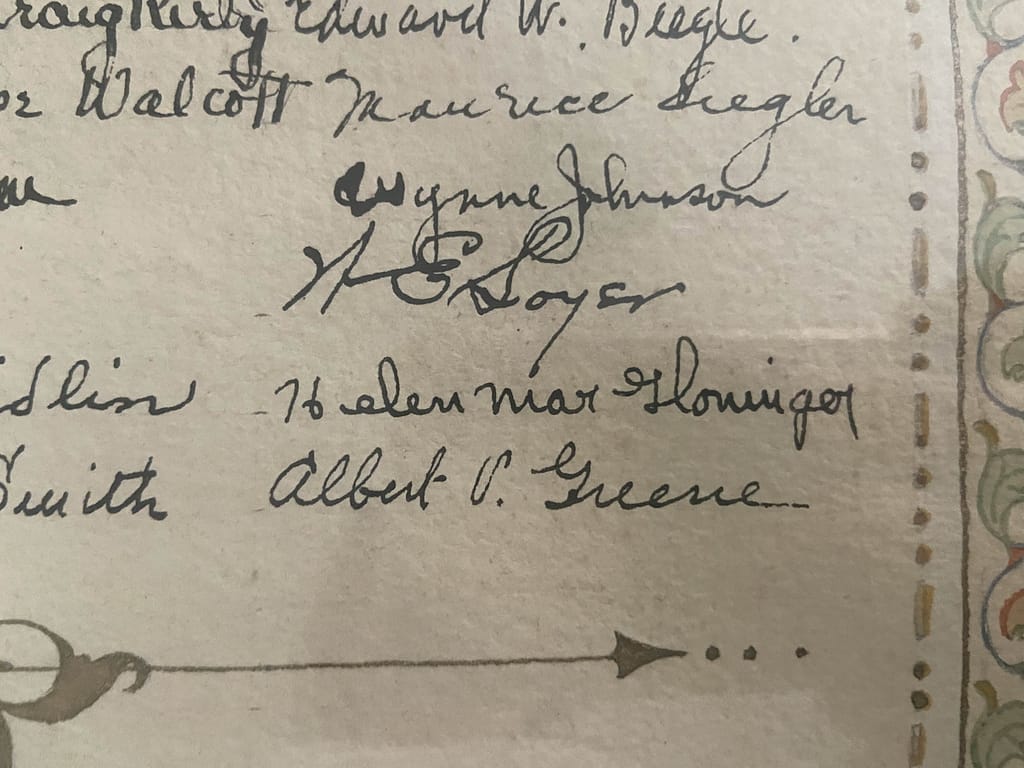 Craig Kirby Edward W. Beegle.
Walcott Maurice Siegler
Wynne Johnson
Helen Mar Gloninger
Smith Albert P. Greene